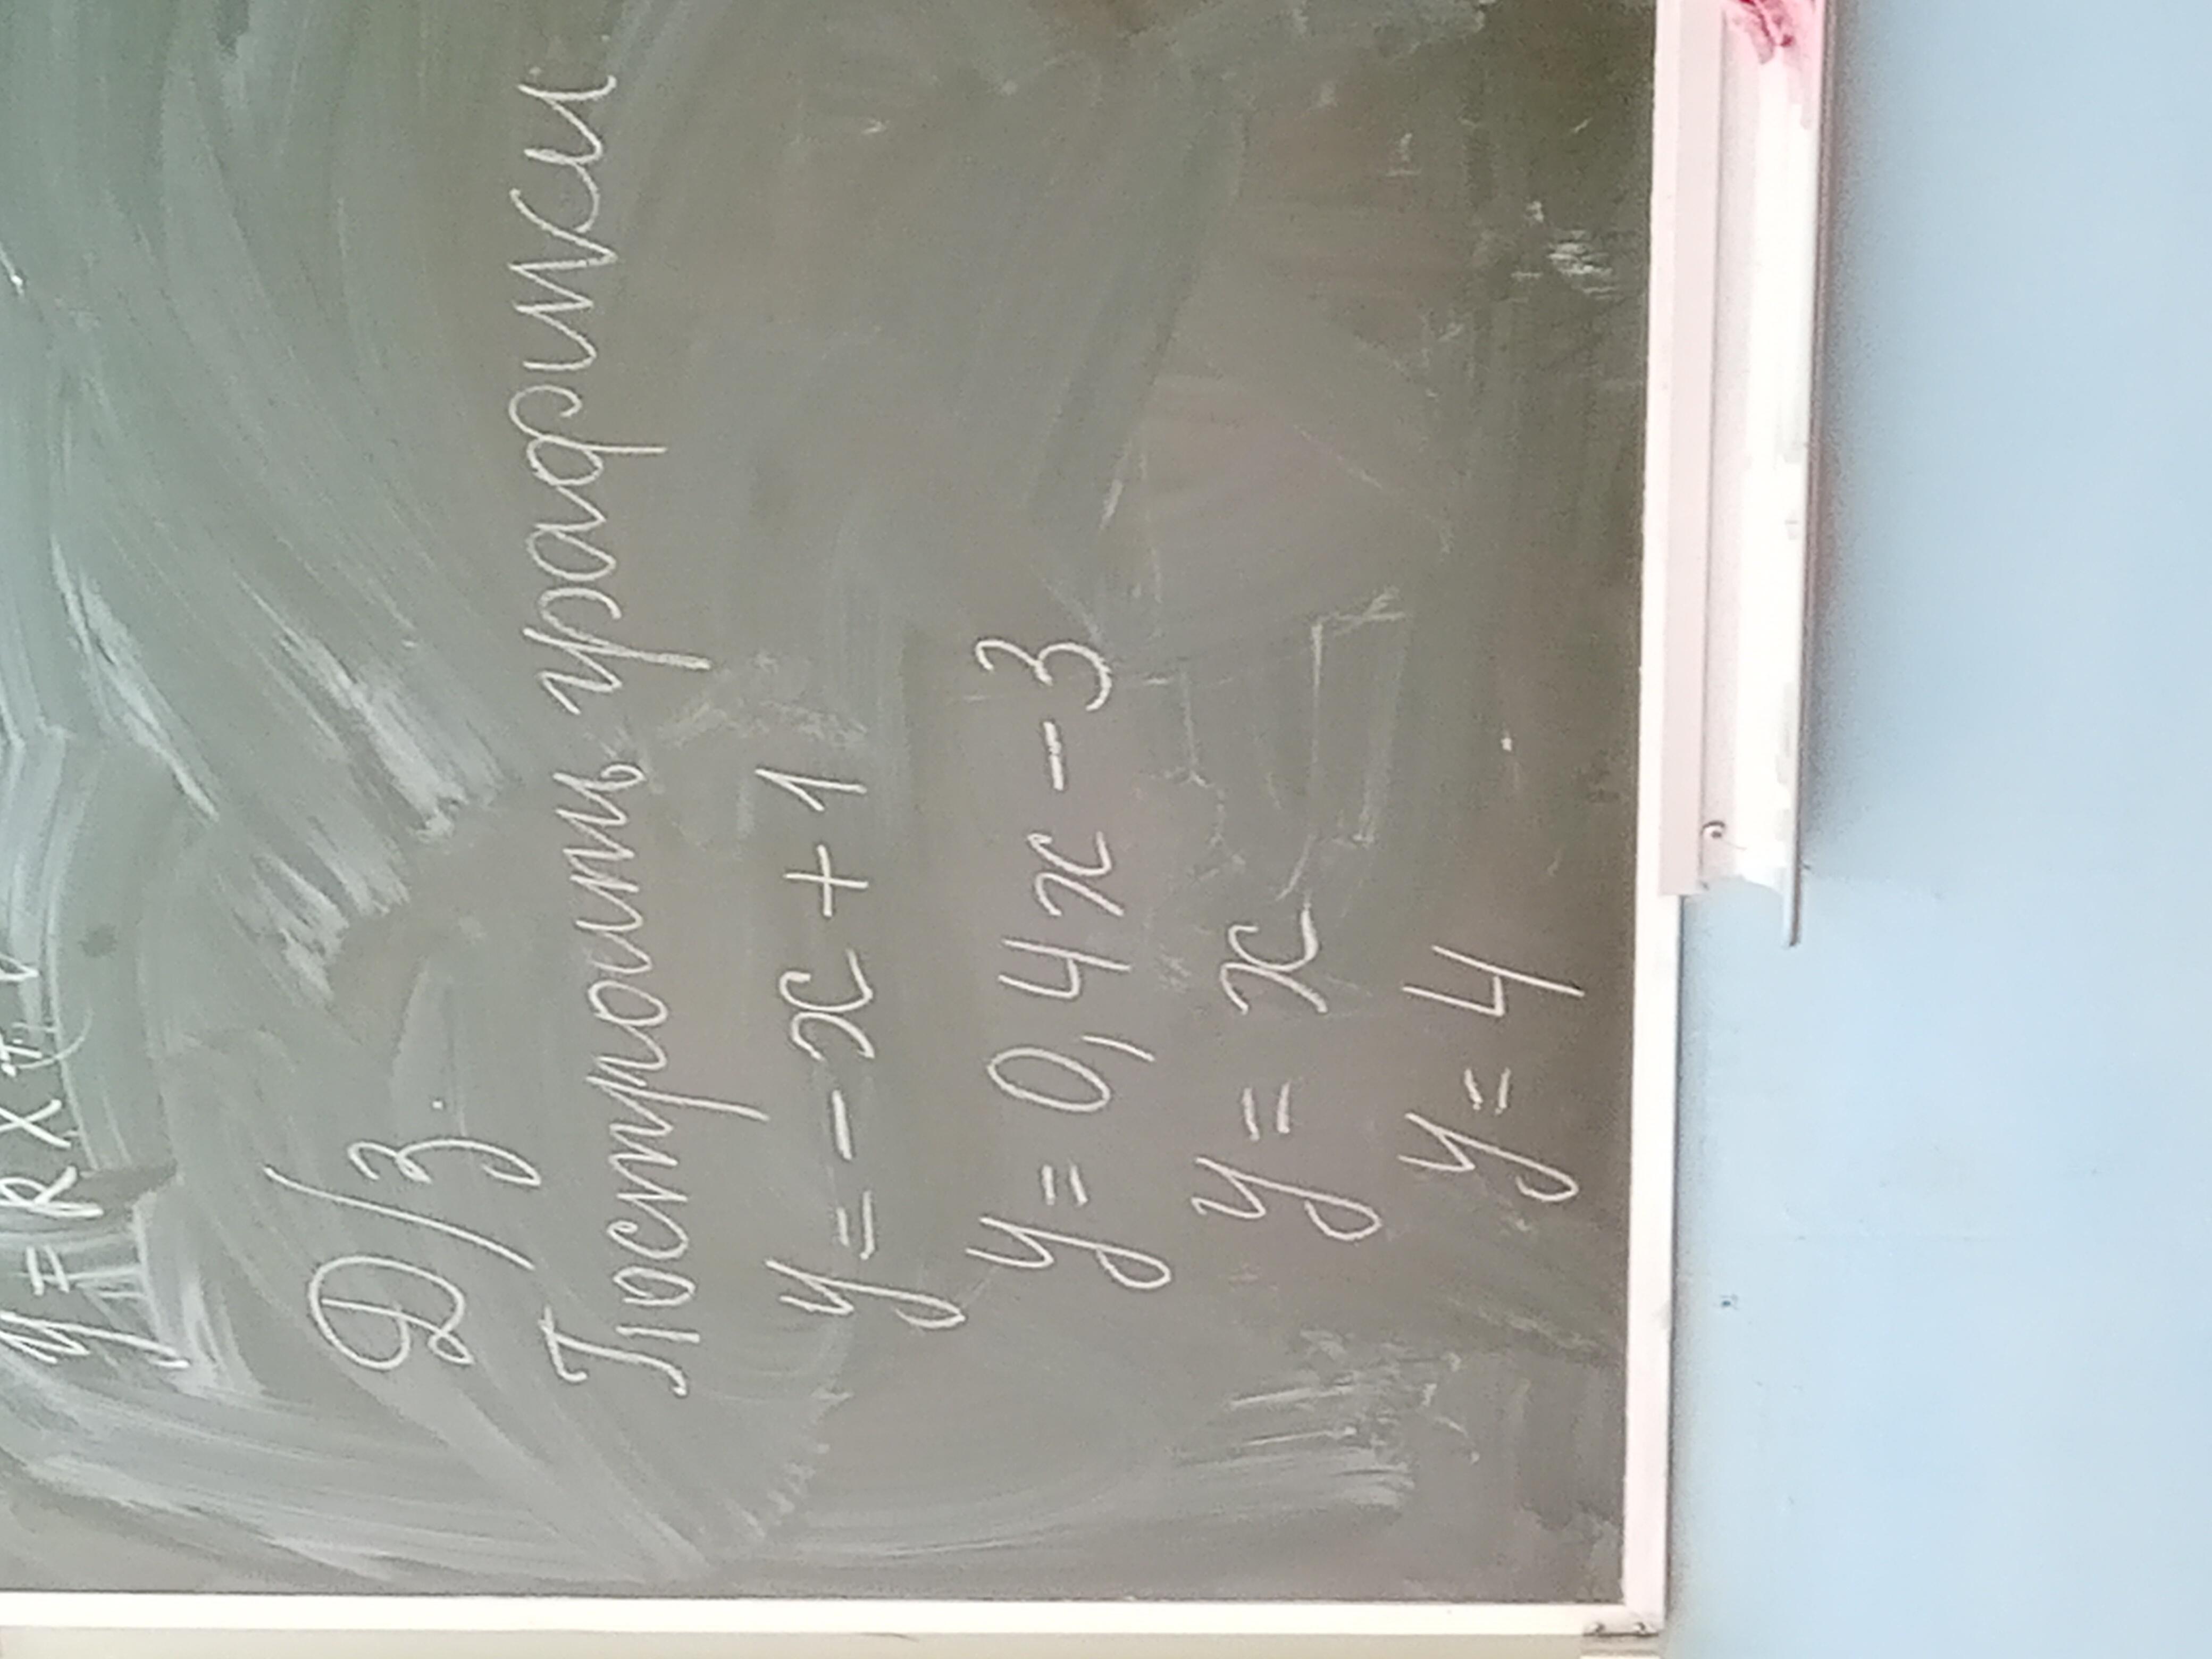 y = kx +
Д/з.
Построить графики
y = -x + 1
y = 0,4x - 3
y = x
y = 4